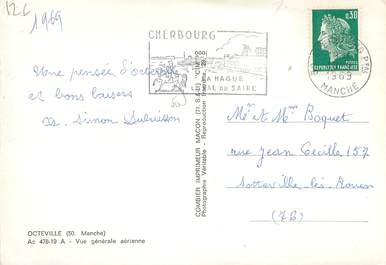 126
1969
CHERBOURG
LA HAGUE
LE VAL DE SAIRE
0,30
REPUBLIQUE FRANCAISE
1969
MANCHE
Une pensée d'octeville
et bons baisers
Simon
Mr et Mme Boquet
rue Jean Cecille 157
Sotteville-lès-Rouen
(76)
COMBIER IMPRIMEUR MACON (71. S.&-L.) "CIM"
Photographie Véritable - Reproduction
OCTEVILLE (50. Manche)
Ac 478-19 A - Vue générale aérienne